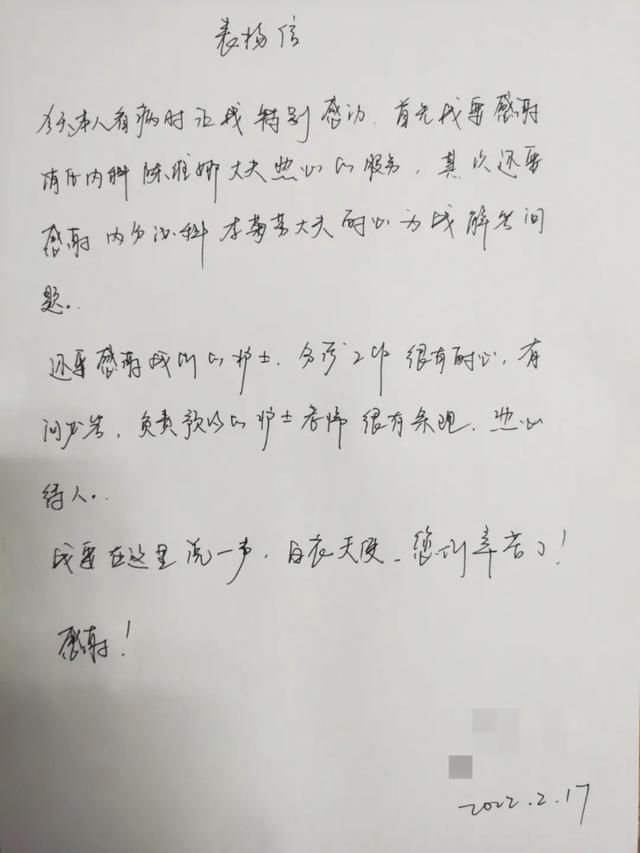 表扬信
今天本人看病时让我特别感动.首先我要感谢
消化内科陈维娜大夫热心的服务,其次还要
感谢内分泌科李菊芳大夫耐心为我解答问
题.
还要感谢我们的护士,分诊工作很有耐心,有
问必答,负责预约的护士老师很有条理,热心
待人.
我要在这里说一声,白衣天使_您们辛苦了!
感谢!
2022.2.17